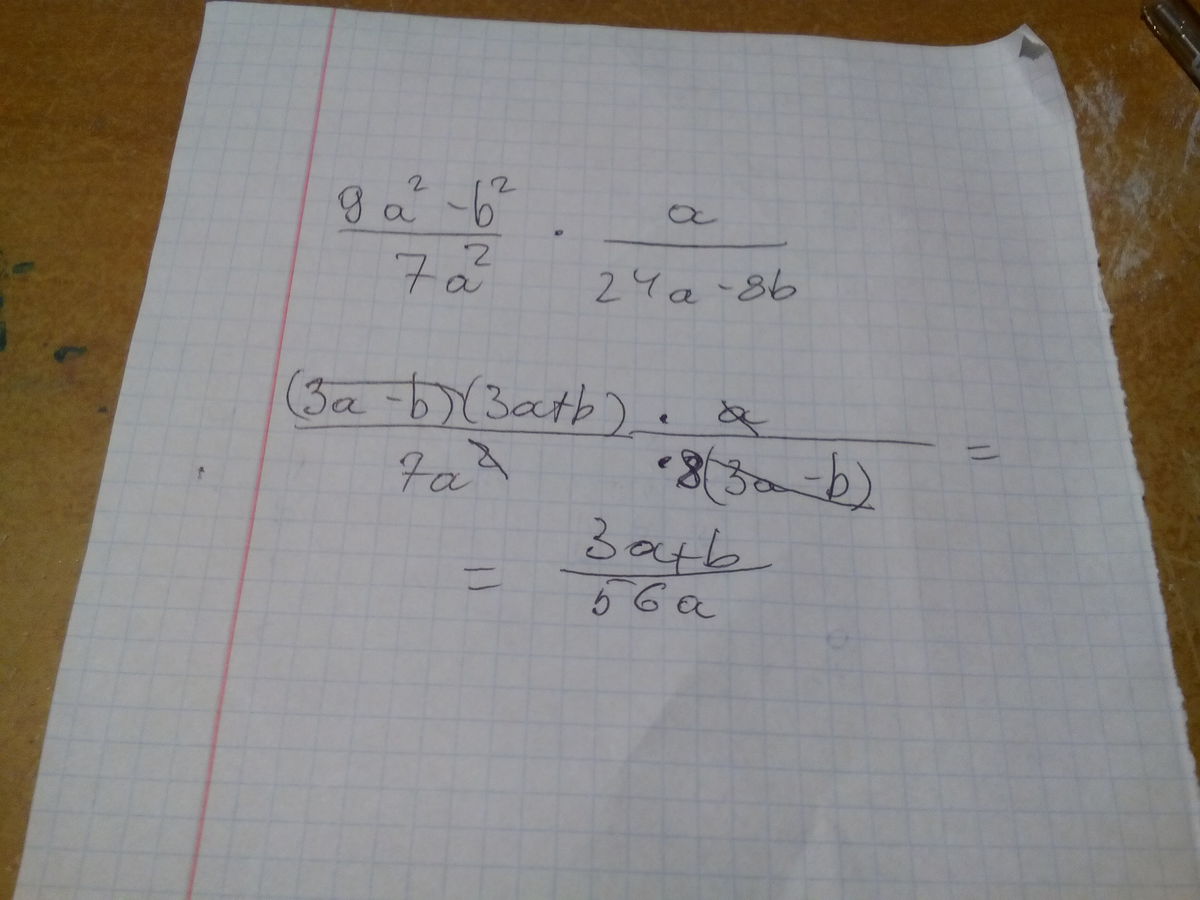 9a² - b² / 7a² · a / 24a - 8b
(3a - b)(3a + b) · a / 7a² · 8(3a - b) =
= 3a + b / 56a